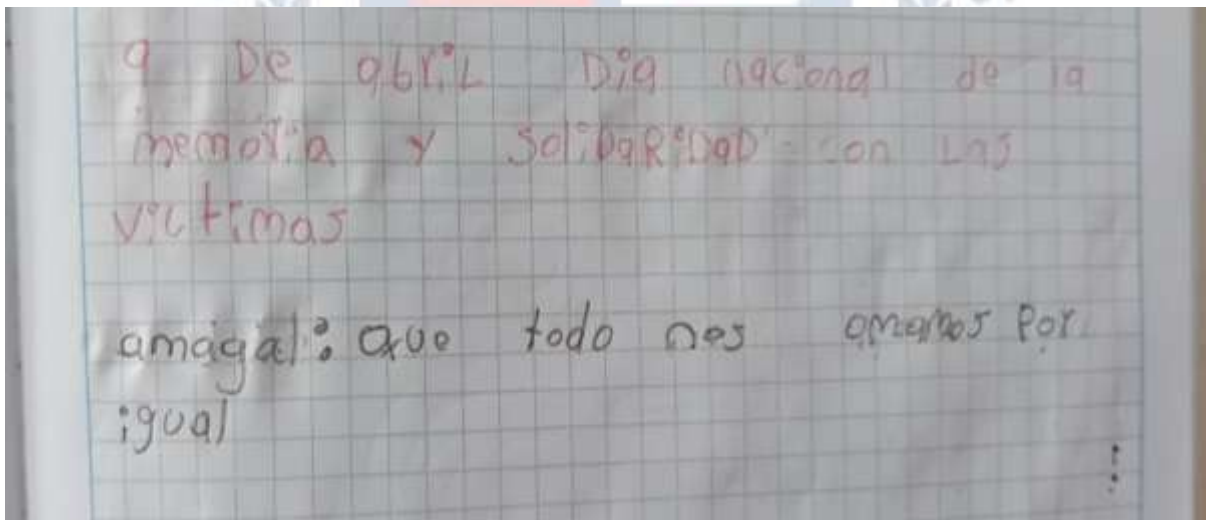 9 De abriL Dia nacional de la
memoria y SoliDaRiDaD con Las
victimas
amagal: Que todo nos amamos Por
igual